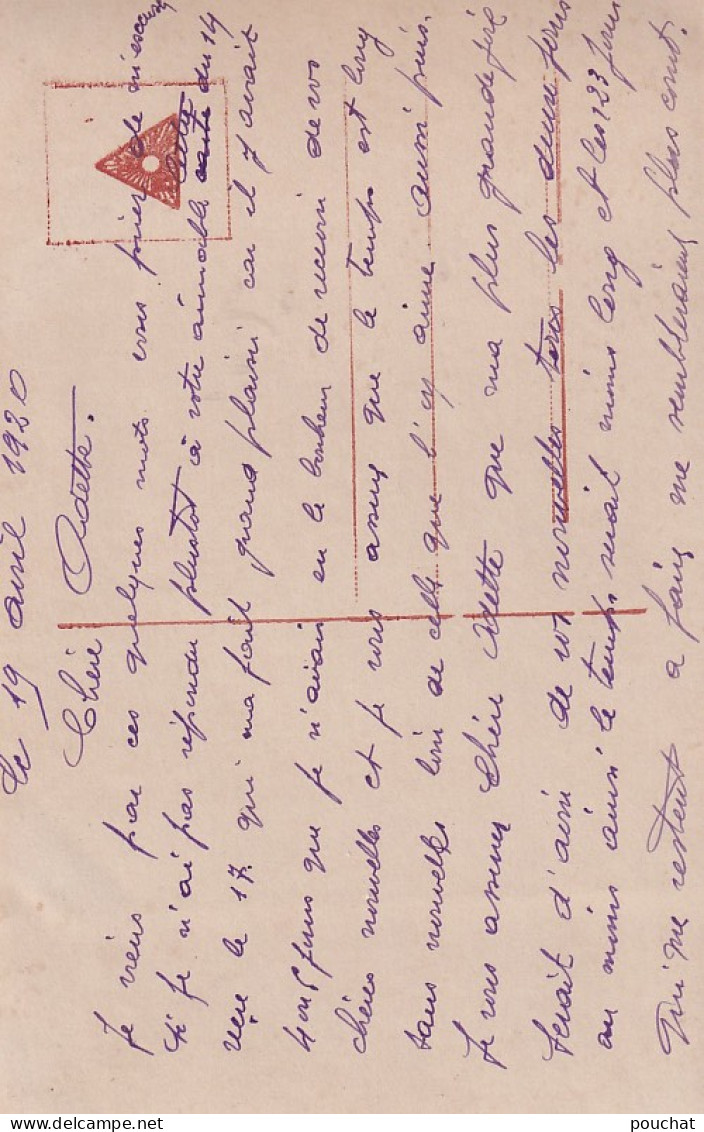 Le 19 avril 1920
Chère Odette.
Je viens par ces quelques mots vous prier de m'excuser
si je n'ai pas répondu plustot à votre aimable carte du 14
reçu le 17. qui ma fait grand plaisir car il y avait
4 ou 5 jours que je n'avais eu le bonheur de recevoir de vos
chères nouvelles et je vous assure que le temps est long
sans nouvelles loin de celle que l'on aime aussi puis.
Je vous assure Chère Odette que ma plus grande joie
serait d'avoir de vos nouvelles tous les deux jours
au moins ainsi le temps serait moins long et les 133 jours
qui me restent a faire me sembleraient plus court.
pouchat
DELCAMPE.NET